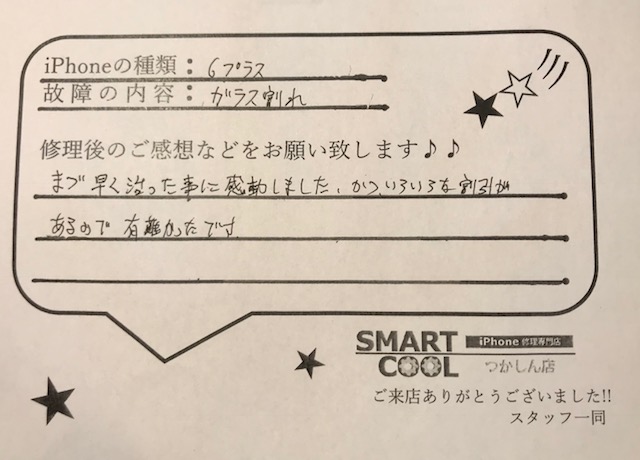 iPhoneの種類：6プラス
故障の内容：ガラス割れ
修理後のご感想などをお願い致します♪♪
まず早く治った事に感動しました、かついろいろな割引が
あるので有難かったです
SMART COOL
iPhone修理専門店
つかしん店
ご来店ありがとうございました!!
スタッフ一同